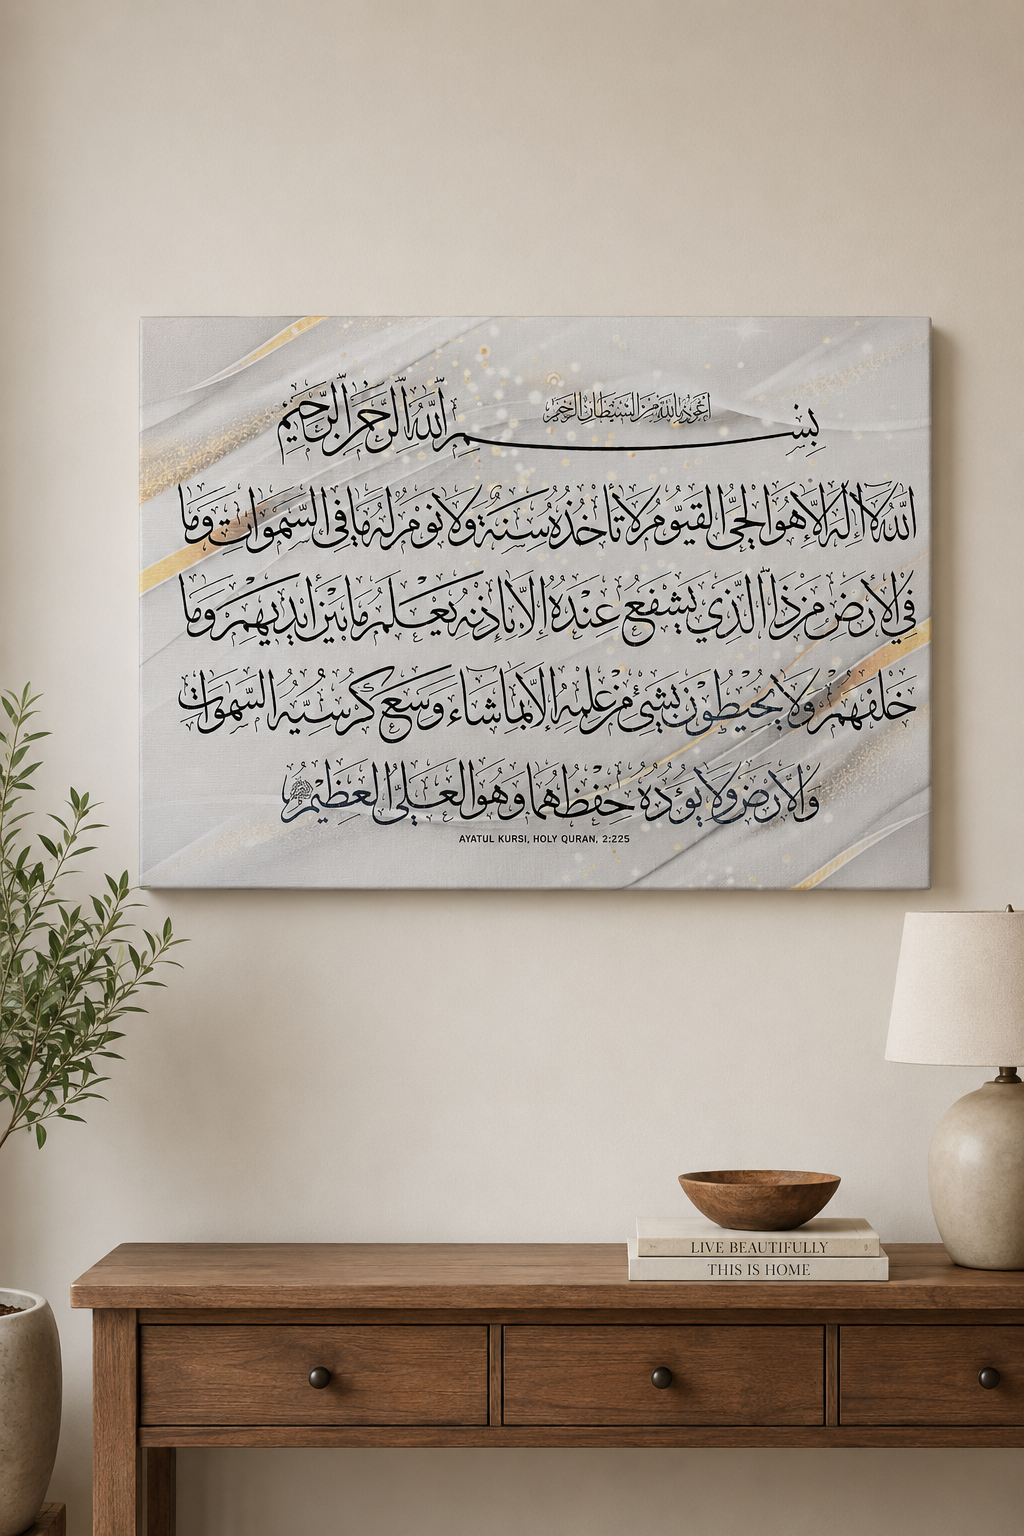 أعوذ بالله من الشيطان الرجيم
بسم الله الرحمن الرحيم
الله لا إله إلا هو الحي القيوم لا تأخذه سنة ولا نوم له ما في السموات وما
في الأرض من ذا الذي يشفع عنده إلا بإذنه يعلم ما بين أيديهم وما
خلفهم ولا يحيطون بشيء من علمه إلا بما شاء وسع كرسيه السموات
والأرض ولا يؤده حفظهما وهو العلي العظيم
AYATUL KURSI, HOLY QURAN, 2:225
LIVE BEAUTIFULLY
THIS IS HOME